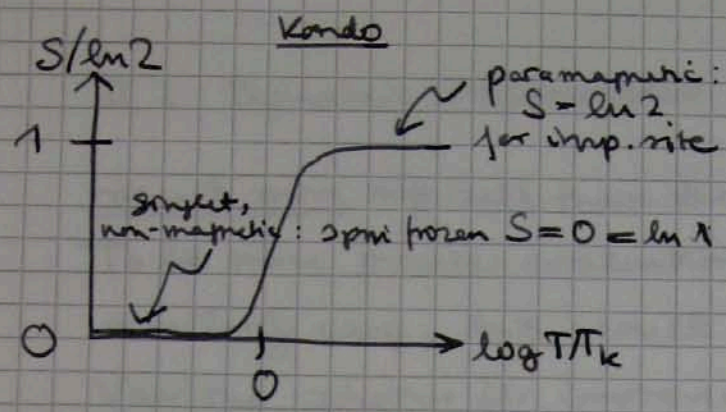 Kondo
S/ln2
paramagnetic:
S = ln 2
for imp. site
1
singlet,
non-magnetic: spin frozen S = 0 = ln 1
0
log T/TK
0